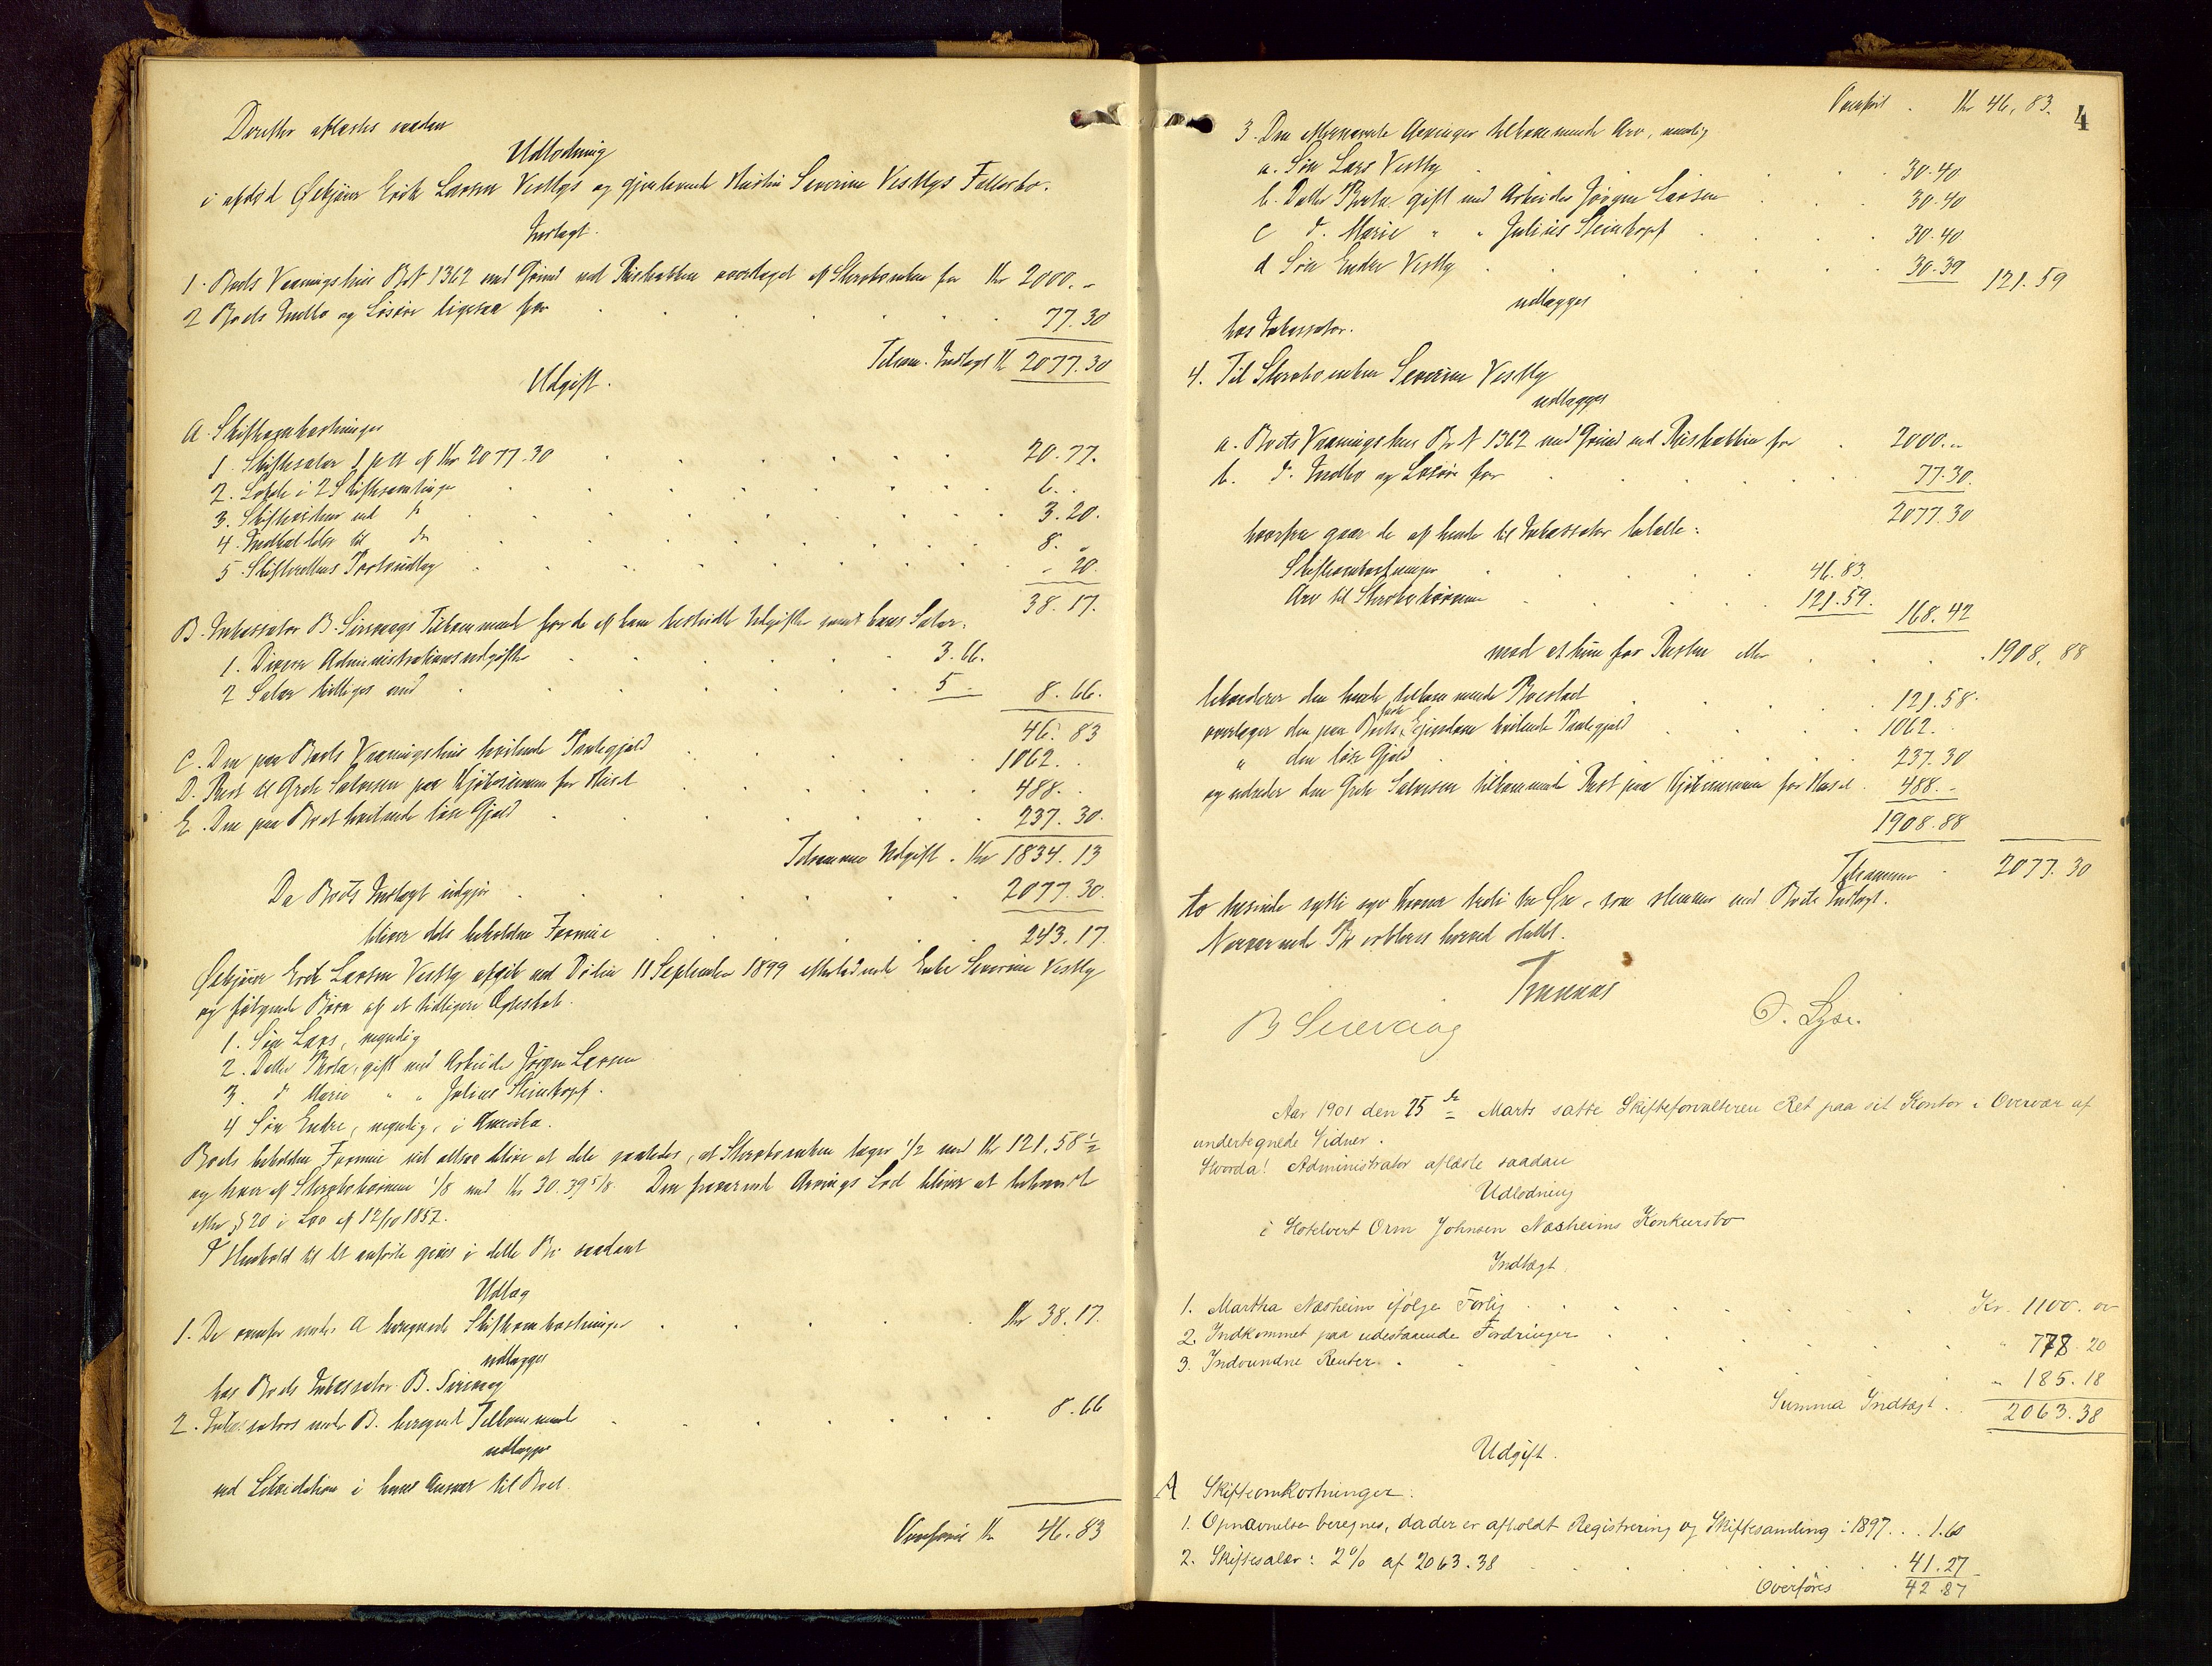 Derefter aflæstes saadan
Udlodning
i afdød Ølkjører Erik Larsen Vestbys og gjenlevende Hustru Severine Vestbys Fællesbo.
Indtægt.
1. Boets Vaaningshus B.N 1362 med Grund ved overtaget af Stervboenken for Kr 2000. -
2 Boets Indbo og Løsøre ligesaa for 77.30
Tilsam. Indtægt Kr 2077.30
Udgift.
A. Skifteomkostninger
1. Skiftesalær 1 pct af Kr 2077.30 20.77.
2. i 2 Skiftesamlinger 6. .
3. ved do 3.20.
4. til do 8. -
5 Skifterettens Portoudlæg - 20.
38.17.
B. Inkassator B. Sirevaags Tilkommende for de af ham bestridte Udgifter samt hans Salær.
1. Diverse Administrationsudgifter 3.66.
2 Salær billiges med 5 - 8.66.
46. 83
C. Den paa Boets Vaaningshus hvilende Pantegjæld 1062. .
D. Rest til Grete Salvesen paa Kjøbesummen for Huset 488. .
E. Den paa Boet hvilende løse Gjæld 237.30.
Tilsammen Udgift. Kr 1834.13
Da Boets Indtægt udgjør 2077.30.
bliver dets beholdne Formue 243.17.
Ølkjører Erik Larsen Vestby afgik ved Døden 11 September 1899 efterladende Enke Severine Vestby
og følgende Børn af et tidligere Ægteskab.
1. Søn Lars, myndig
2. Datter Berta, gift med Arbeider Jørgen Larsen
3. do Marie " " Julius Steinkopf.
4 Søn Endre, myndig, i Amerika.
Boets beholdne Formue vil altsaa blive at dele saaledes, at Stervboenken tager 1/2 med Kr 121.58 1/2
og hver af Stervbobørnene 1/8 med Kr 30.39 5/8. Den fraværende Arvings Lod bliver at behandle
efter § 20 i Lov af 12/10 1857.
I Henhold til det anførte gjøres i dette Bo saadant
Udlæg
1. De ovenfor under A beregnede Skifteomkostninger Kr 38.17.
udlægges
hos Boets Inkassator B. Sirevaag
2. Inkassators under B. beregnede Tilkommende 8.66
udlægges
ved Likvidation i hans Ansvar til Boet.
Overføres Kr 46.83
4
Overført . Kr 46, 83.
3. Den Arvinger tilkommende Arv, nemlig
a. Søn Lars Vestby 30.40
b. Datter Berta gift med Arbeider Jørgen Larsen 30.40
c do. Marie " " Julius Steinkopf 30.40
d Søn Endre Vestby 30.39 121.59
udlægges
hos Inkassator.
4. Til Stervboenken Severine Vestby
udlægges
a. Boets Vaaningshus Br N 1362 med Grund ved for 2000. -
b. do. Indbo og Løsøre for 77.30.
2077.30
hvorfra gaar de af hende til Inkassator betalte:
Skifteomkostninger 46.83.
Arv til Stervbobørnene 121.59. 168.42
mod at hun for Resten eller 1908, 88
beholder den hende tilkommende Boeslod 121.58.
overtager den paa Boets faste Ejendom hvilende Pantegjæld 1062. .
" den løse Gjæld 237.30
og udreder den Grete Salvesen tilkommende Rest paa Kjøbesummen for Huset. 488. -
1908.88
Tilsammen 2077.30
to tusinde sytti syv Kroner tredi Øre, som stemmer med Boets Indtægt.
Nærværende Bo erklæres hermed sluttet.
B Sirevaag O. Lyse.
Aar 1901 den 25de Marts satte Skifteforvalteren Ret paa sit Kontor i Overvær af
undertegnede Vidner.
Hvorda! Administrator aflæste saadan
Udlodning
i Hotelvert Orm Johnsen Næsheims Konkursbo
Indtægt.
1. Martha Næsheim ifølge Forlig Kr. 1100. 00
2. Indkommet paa udestaaende Fordringer " 778. 20
3. Indvundne Renter " 185. 18
Summa Indtægt 2063. 38
Udgift.
A Skifteomkostninger:
1. Opnævnelse beregnes, da der er afholdt Registrering og Skiftesamling i 1897 . . 1.60
2. Skiftesalær: 2% af 2063.38 41.27
Overføres 42.87